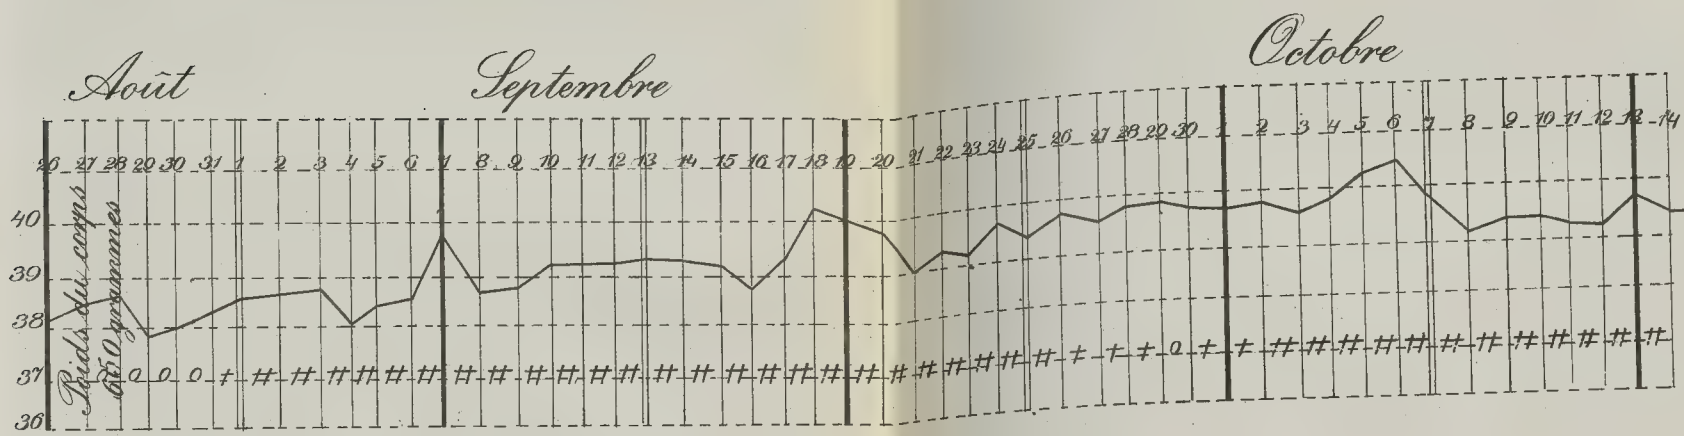 Août Septembre Octobre
26 27 28 29 30 31 1 2 3 4 5 6 7 8 9 10 11 12 13 14 15 16 17 18 19 20 21 22 23 24 25 26 27 28 29 30 1 2 3 4 5 6 7 8 9 10 11 12 13 14
40
39
38
37 o o o + # # # # # # # # # # # # # # # # # # # # # # # # # + + + o + + # # # # # # # # # # # #
36
Poids du corps
grammes